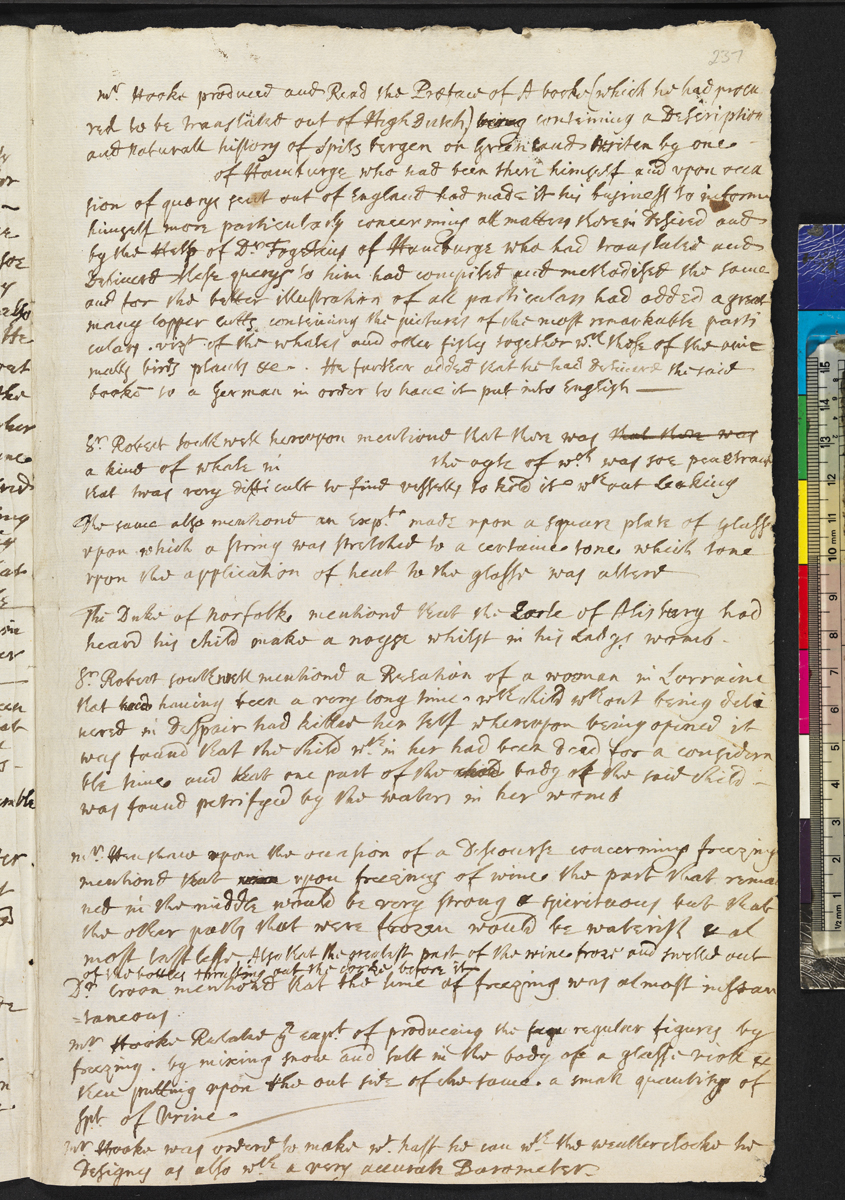 237
mr. Hooke produced and Read the Preface of A booke (which he had procu
red to be translated out of High Dutch) being containing a Description
and naturall history of Spitsbergen or Greenland written by one
of Hamburge who had been there himself and upon occa
sion of querys sent out of England had made it his businesse to informe
himself more particularly concerning all matters therein Desired and
by the Help of Dr. Fogelius of Hamburge who had translated and
Delivered these querys to him had compiled and methodised the same
and for the better illustration of all particulars had added a great
many copper cutts containing the pictures of the most remarkable parti
culars. vizt of the whales and other fishes together wth those of the ani
malls birds plants &c. He further added that he had Delivered the said
booke to a German in order to have it put into English
Sr. Robert Southwell hereupon mentiond that there was that there was
a kind of whale in the oyle of wch was soe penetrant
that twas very difficult to find vessells to hold it wthout Leaking
The same also mentiond an Expt. made upon a square plate of glasse
upon which a string was stretched to a certaine tone which tone
upon the application of heat to the glasse was alterd
The Duke of Norfolke mentiond that the Earle of Alisbury had
heard his child make a noyse whilst in his Ladys womb
Sr. Robert Southwell mentiond a Relation of a wooman in Lorraine
that had having been a very long time wth child wthout being deli
vered in Despair had killed her self whereupon being opened it
was found that the child wthin her had been Dead for a considera
ble time and that one part of the child body of the said child
was found petrifyed by the waters in her womb
mr. Henshaw upon the occasion of a Discourse concerning freezing
mentiond that upon freezing of wine the part that remai
ned in the middle would be very strong & spirituous but that
the other parts that were frozen would be waterish & al
most tastlesse. Also that the greatest part of the wine froze and swelled out
of the bottle thrusting out the corke before it
Dr. Croon mentiond that the time of freezing was almost instan
=taneous
mr Hooke Related ye expt. of producing the regular figures by
freezing. by mixing snow and salt in the body of a glasse viol &
then putting upon the out side of the same a small quantity of
Spt. of Urine.
mr Hooke was orderd to make wt. hast he can wth the weatherclocke he
Designes as also wth a very accurate Barometer